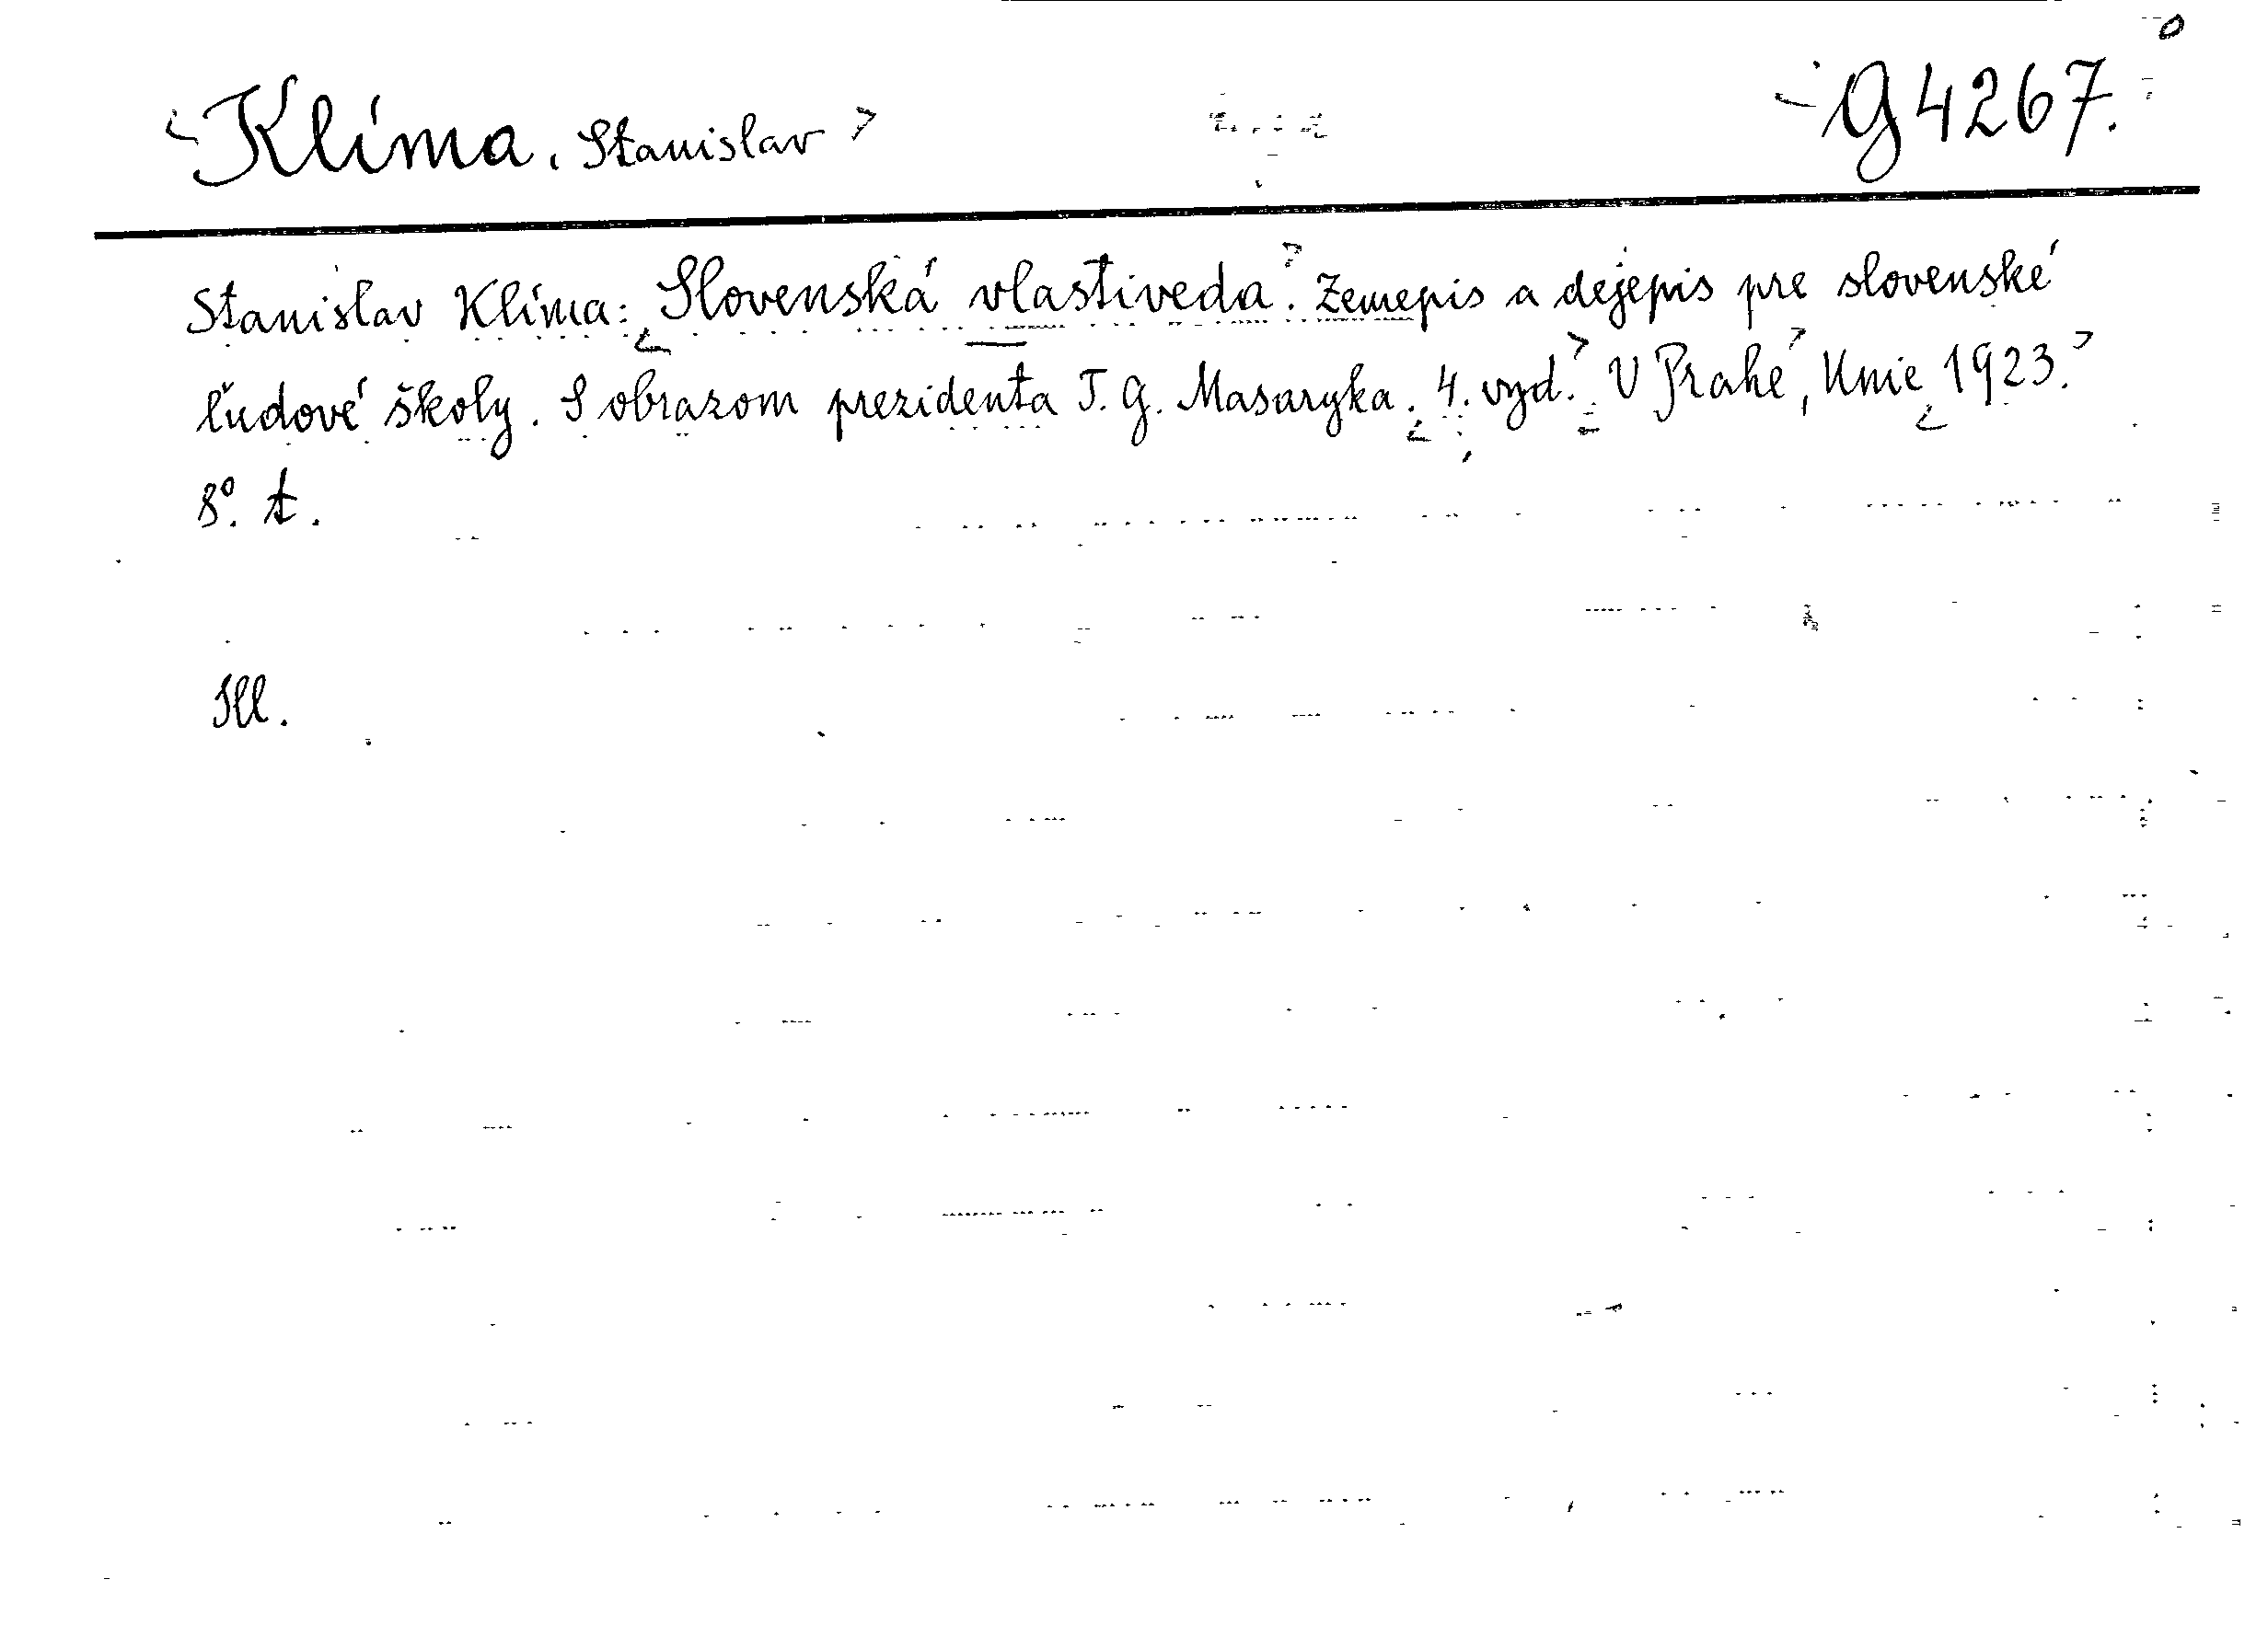 Klíma, Stanislav G 4267.
Stanislav Klíma: Slovenská vlastiveda. Zemepis a dejepis pre slovenské
ľudové školy. S obrazom prezidenta T. G. Masaryka. 4. vyd. V Prahe, Unie 1923.
8°. t.
Ill.